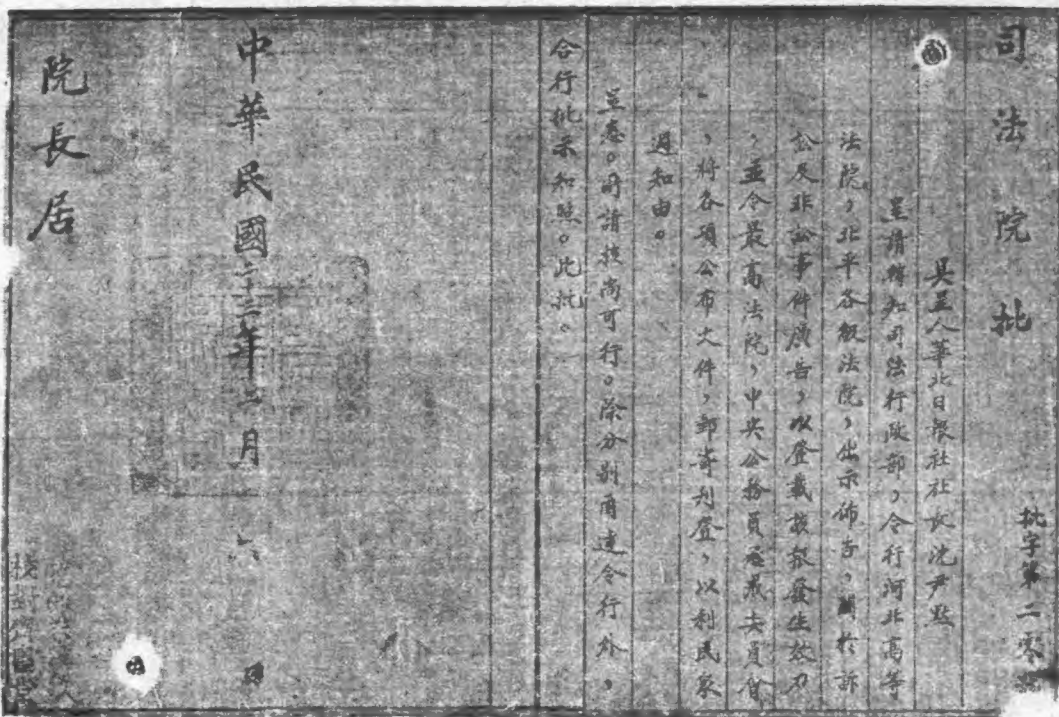 司法院批
批字第二零
具呈人華北日報社社長沈尹默
呈請轉知司法行政部,令行河北高等
法院,北平各級法院,出示佈告,關於訴
訟及非訟事件廣告,以登載該報發生效力
,並令最高法院,中央公務員懲戒委員會
,將各項公布文件,郵寄刊登,以利民衆
週知由。
呈悉。所請核尚可行。除分別函達令行外,
合行批示知照。此批。
中華民國二十二年二月六日
院長居